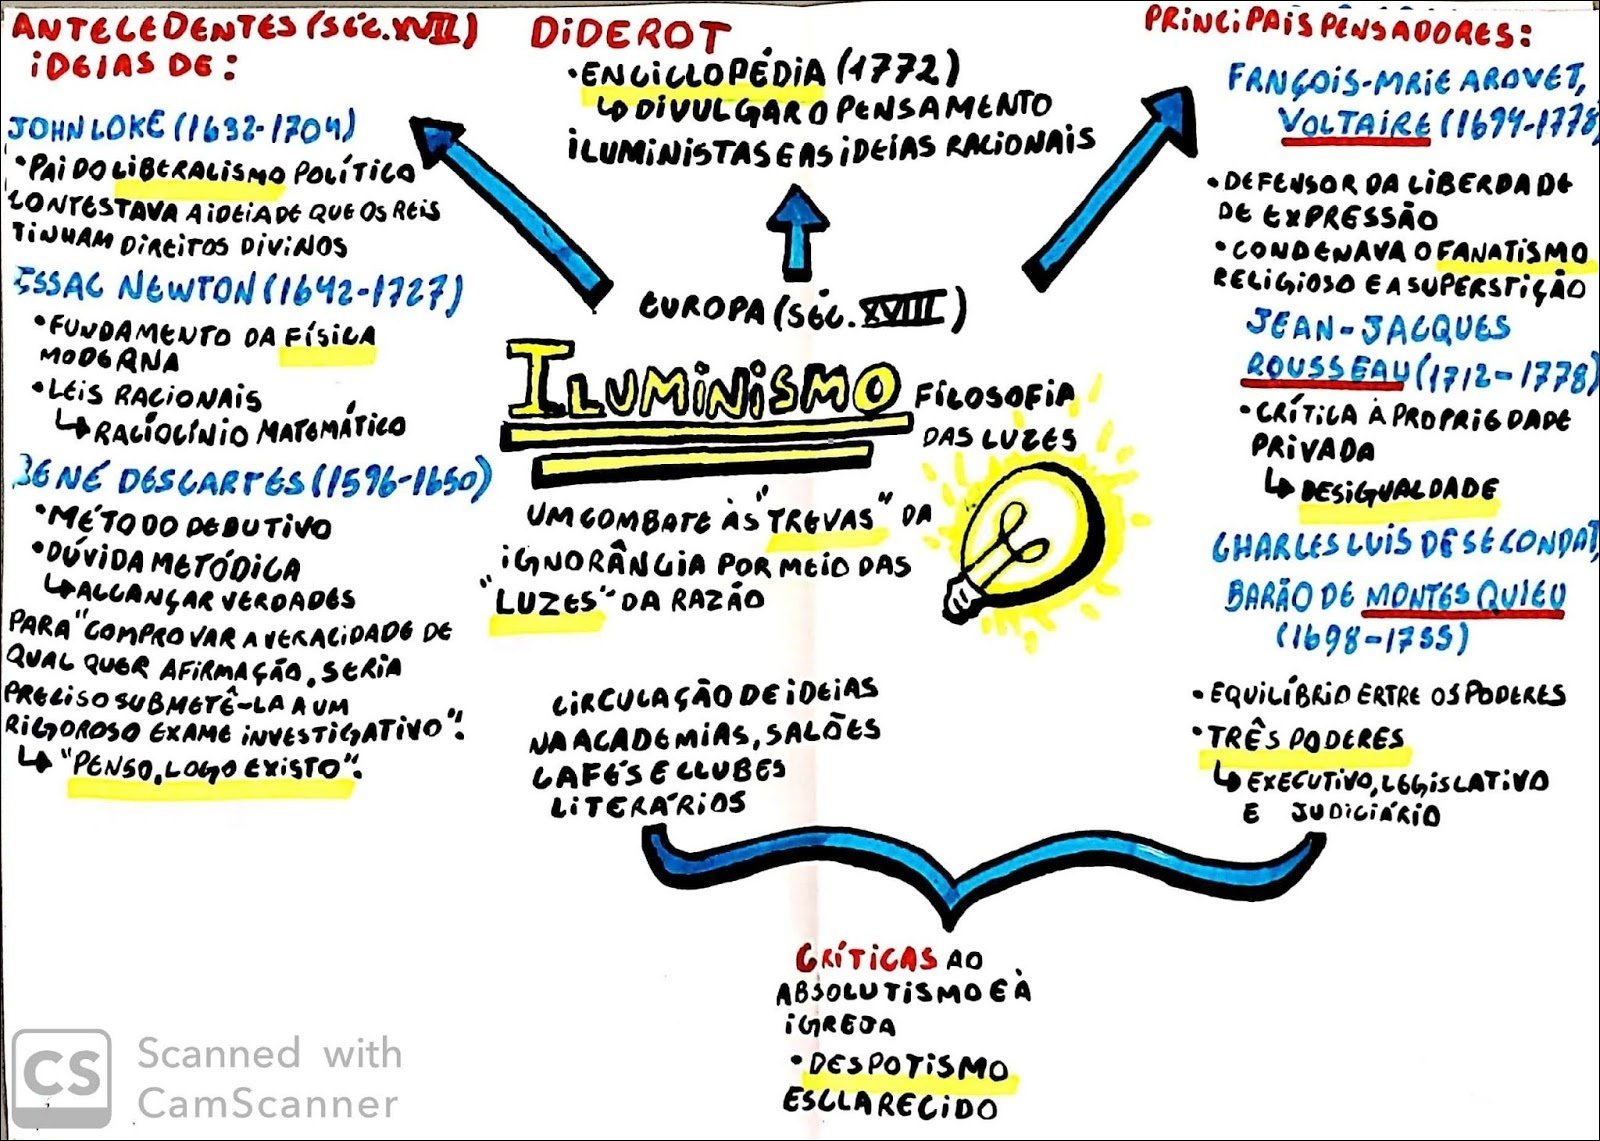 ANTECEDENTES (SÉC. XVII)
IDEIAS DE:
JOHN LOKE (1632-1704)
• PAI DO LIBERALISMO POLÍTICO
CONTESTAVA A IDEIA DE QUE OS REIS
TINHAM DIREITOS DIVINOS
ISSAC NEWTON (1642-1727)
• FUNDAMENTO DA FÍSICA
MODERNA
• LEIS RACIONAIS
↳ RACIOCÍNIO MATEMÁTICO
RENÉ DESCARTES (1596-1650)
• MÉTODO DEDUTIVO
• DÚVIDA METÓDICA
↳ ALCANÇAR VERDADES
PARA "COMPROVAR A VERACIDADE DE
QUAL QUER AFIRMAÇÃO, SERIA
PRECISO SUBMETÊ-LA A UM
RIGOROSO EXAME INVESTIGATIVO".
↳ "PENSO, LOGO EXISTO".
DIDEROT
• ENCICLOPÉDIA (1772)
↳ DIVULGAR O PENSAMENTO
ILUMINISTAS E AS IDEIAS RACIONAIS
EUROPA (SÉC. XVIII)
ILUMINISMO
FILOSOFIA
DAS LUZES
UM COMBATE ÀS "TREVAS" DA
IGNORÂNCIA POR MEIO DAS
"LUZES" DA RAZÃO
CIRCULAÇÃO DE IDEIAS
NA ACADEMIAS, SALÕES
CAFÉS E CLUBES
LITERÁRIOS
PRINCIPAIS PENSADORES:
FRNÇOIS-MRIE AROVET,
VOLTAIRE (1694-1778)
• DEFENSOR DA LIBERDADE
DE EXPRESSÃO
• CONDENAVA O FANATISMO
RELIGIOSO E A SUPERSTIÇÃO
JEAN-JACQUES
ROUSSEAU (1712-1778)
• CRÍTICA À PROPRIEDADE
PRIVADA
↳ DESIGUALDADE
CHARLES LUIS DE SECONDAT,
BARÃO DE MONTESQUIEU
(1698-1755)
• EQUILÍBRIO ERTRE OS PODERES
• TRÊS PODERES
↳ EXECUTIVO, LEGISLATIVO
E JUDICIÁRIO
CRÍTICAS AO
ABSOLUTISMO E À
IGREJA
• DESPOTISMO
ESCLARECIDO
CS
Scanned with
CamScanner